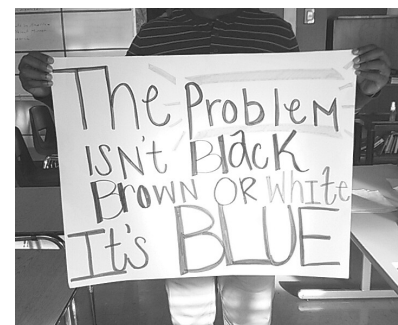 The Problem
ISN't Black
Brown OR White
It's BLUE